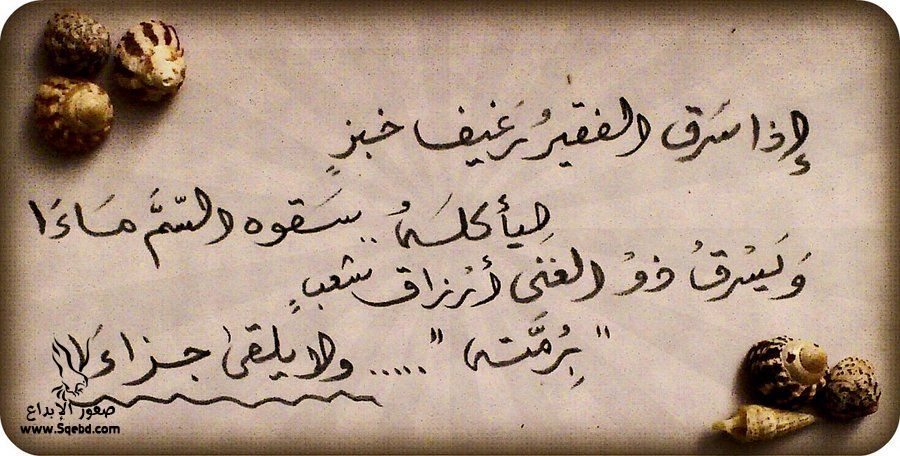 إذا سَرق الفقيرُ رَغيفا خبزٍ
ليأكلَهُ .. سَقوه السّمَّ مَاءَا
وَيَسْرقُ ذوُ الغنى أرْزاق شعبٍ
"بِرُمَّته" ..... ولا يلقى جزاءَا
صقور الإبداع
www.Sqebd.com